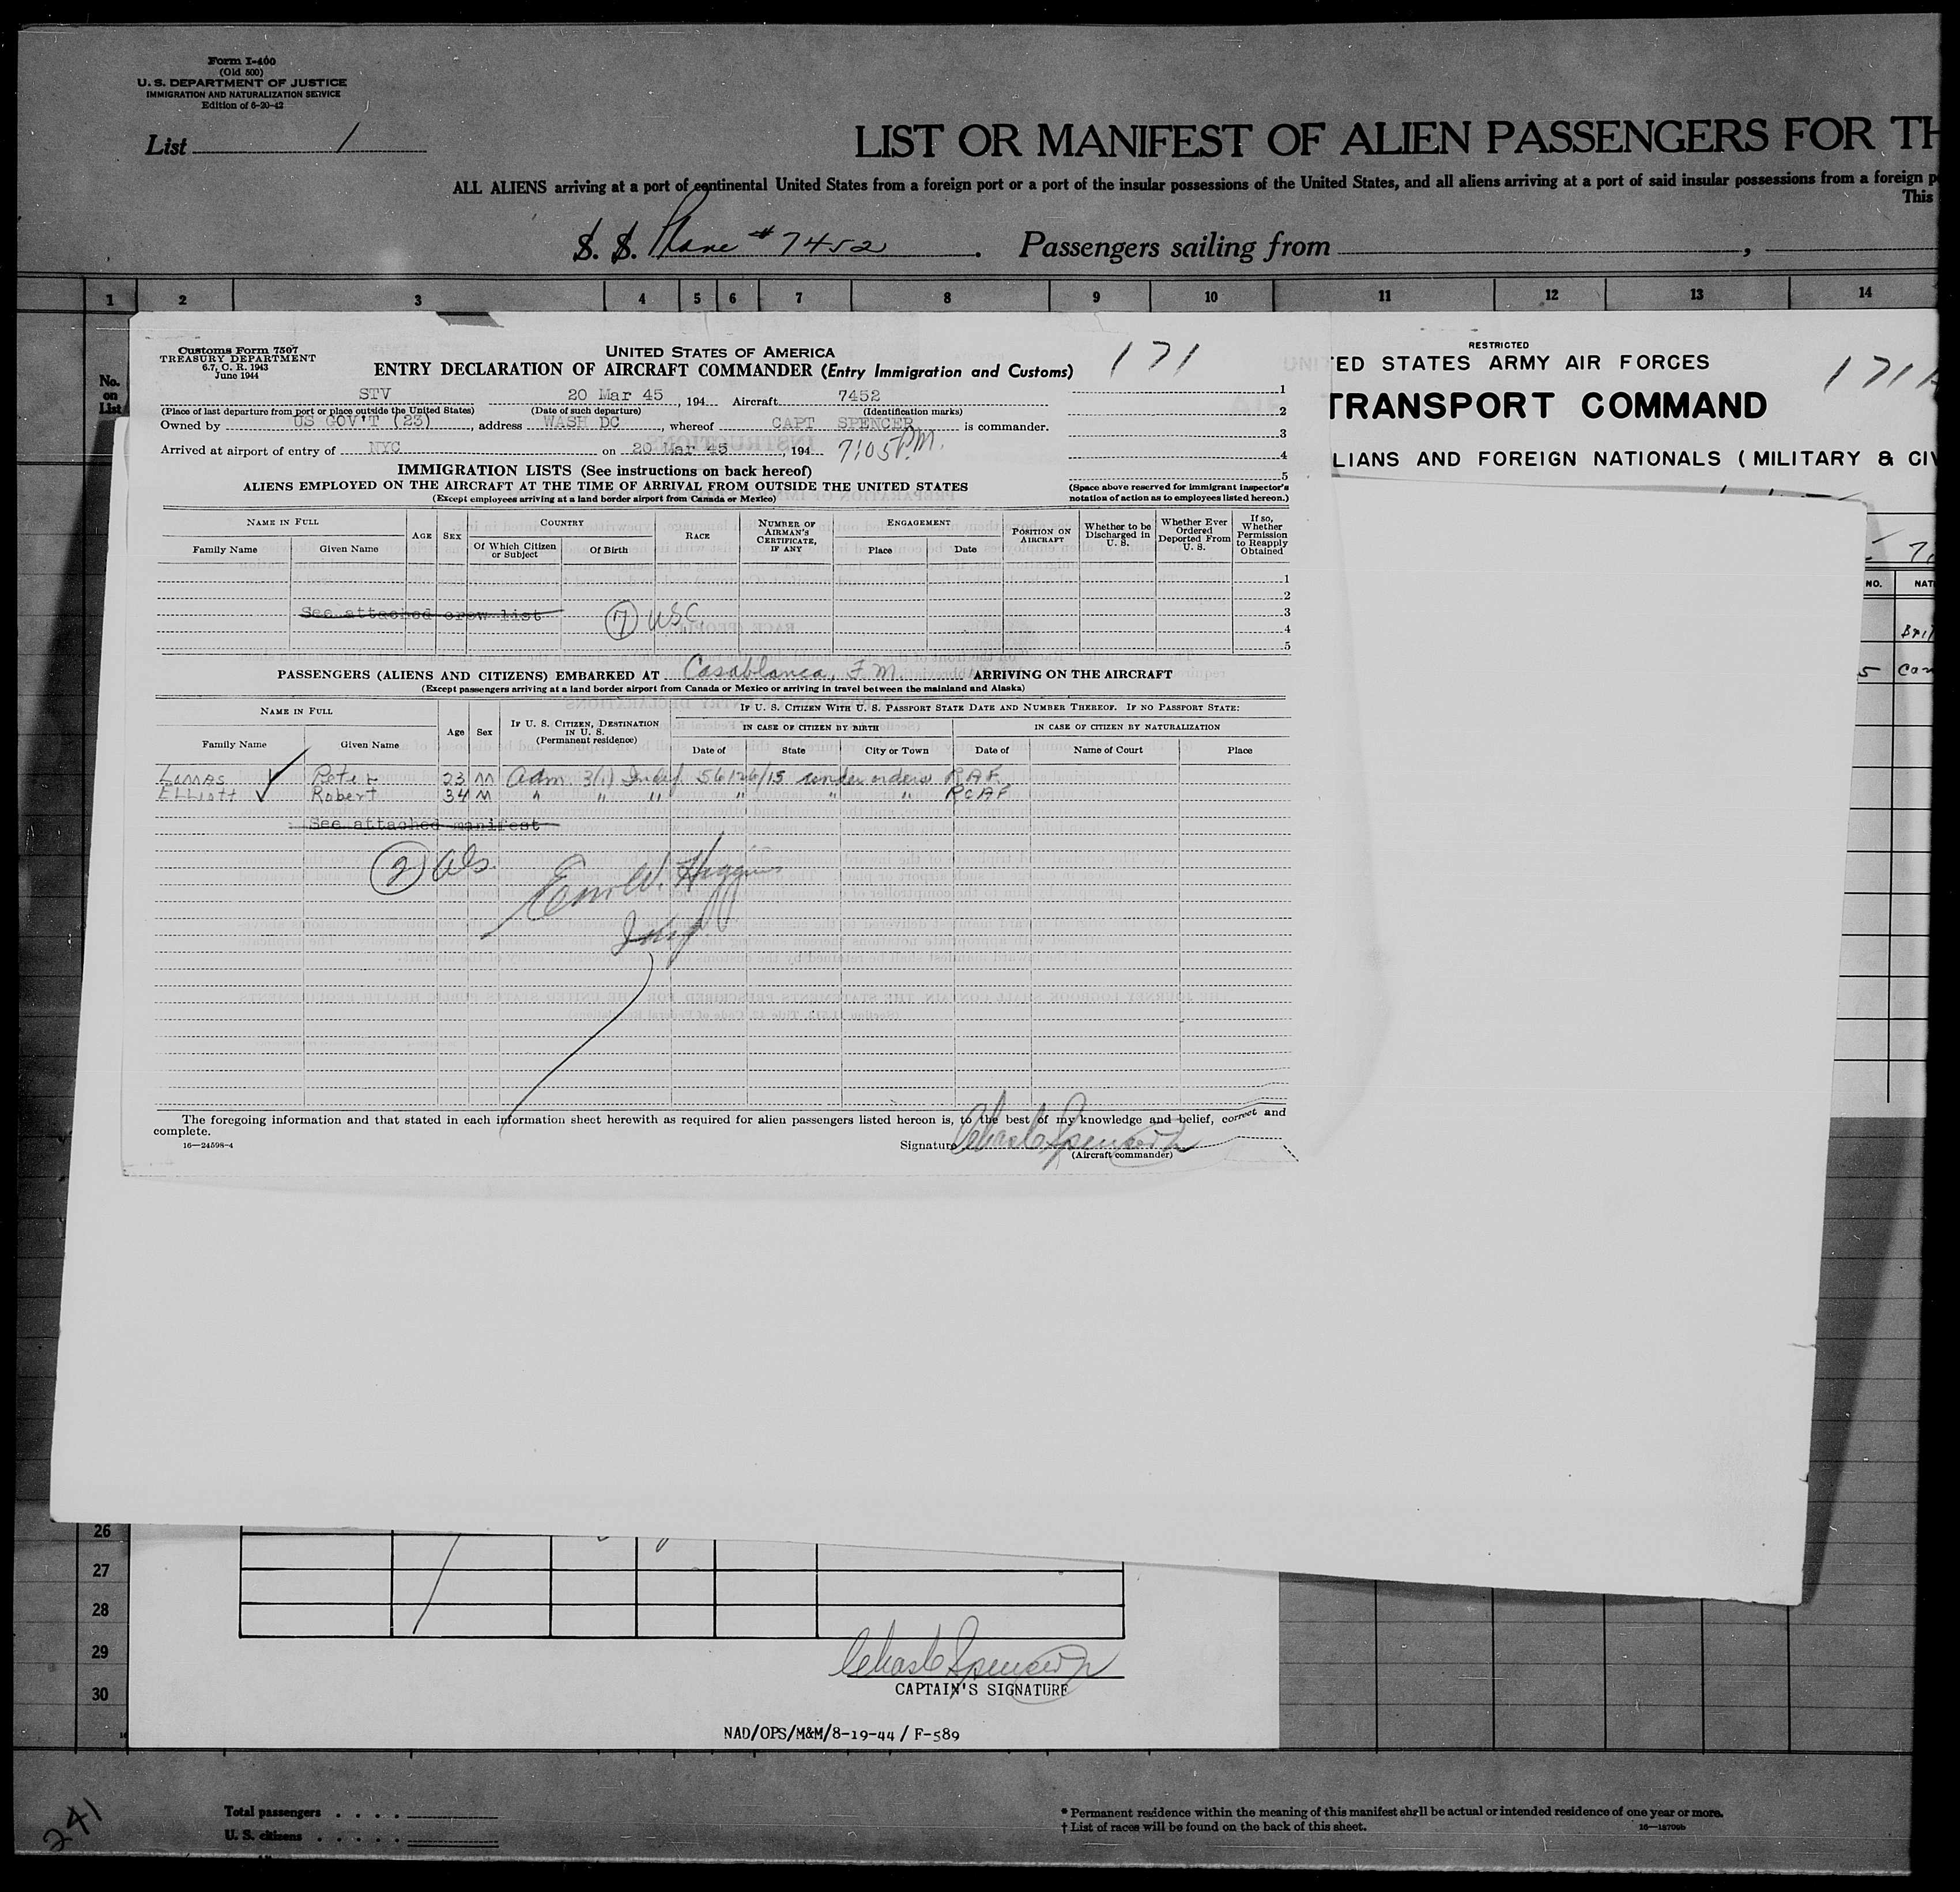 Form I-400
(Old 500)
U. S. DEPARTMENT OF JUSTICE
IMMIGRATION AND NATURALIZATION SERVICE
Edition of 6-20-42
List 1
LIST OR MANIFEST OF ALIEN PASSENGERS FOR TH
ALL ALIENS arriving at a port of continental United States from a foreign port or a port of the insular possessions of the United States, and all aliens arriving at a port of said insular possessions from a foreign p
This
S. S. Plane #7452. Passengers sailing from ,
1 2 3 4 5 6 7 8 9 10 11 12 13 14
No. on List
Customs Form 7507
TREASURY DEPARTMENT
6.7, C. R. 1943
June 1944
UNITED STATES OF AMERICA
ENTRY DECLARATION OF AIRCRAFT COMMANDER (Entry Immigration and Customs)
171
STV 20 Mar 45, 194 Aircraft 7452
(Place of last departure from port or place outside the United States) (Date of such departure) (Identification marks)
Owned by US GOV'T (23), address WASH DC, whereof CAPT SPENCER is commander.
Arrived at airport of entry of NYC on 20 Mar 45, 194 7:05 P.M.
1
2
3
4
5
(Space above reserved for immigrant inspector's notation of action as to employees listed hereon.)
IMMIGRATION LISTS (See instructions on back hereof)
ALIENS EMPLOYED ON THE AIRCRAFT AT THE TIME OF ARRIVAL FROM OUTSIDE THE UNITED STATES
(Except employees arriving at a land border airport from Canada or Mexico)
NAME IN FULL
Family Name Given Name
AGE SEX
COUNTRY
Of Which Citizen or Subject Of Birth
RACE
NUMBER OF AIRMAN'S CERTIFICATE, IF ANY
ENGAGEMENT
Place Date
POSITION ON AIRCRAFT
Whether to be Discharged in U. S.
Whether Ever Ordered Deported From U. S.
If so, Whether Permission to Reapply Obtained
1
2
See attached crew list 7 USC 3
4
5
PASSENGERS (ALIENS AND CITIZENS) EMBARKED AT Casablanca, F.M. ARRIVING ON THE AIRCRAFT
(Except passengers arriving at a land border airport from Canada or Mexico or arriving in travel between the mainland and Alaska)
NAME IN FULL
Family Name Given Name
Age Sex
IF U. S. CITIZEN, DESTINATION IN U. S.
(Permanent residence)
IF U. S. CITIZEN WITH U. S. PASSPORT STATE DATE AND NUMBER THEREOF. IF NO PASSPORT STATE:
IN CASE OF CITIZEN BY BIRTH IN CASE OF CITIZEN BY NATURALIZATION
Date of State City or Town Date of Name of Court Place
Peter 23 M Adm 3(1) 56126/15 under orders RAF
Elliott Robert 34 M " " " " " " RCAF
See attached manifest
2 als
Higgins
Insp
The foregoing information and that stated in each information sheet herewith as required for alien passengers listed hereon is, to the best of my knowledge and belief, correct and
complete.
16—24598-4
Signature
(Aircraft commander)
RESTRICTED
TED STATES ARMY AIR FORCES
171A
TRANSPORT COMMAND
LIANS AND FOREIGN NATIONALS (MILITARY & CIV
NO. NAT
Brit
5 Can
26
27
28
29
30
CAPTAIN'S SIGNATURE
NAD/OPS/M&M/8-19-44 / F-589
241
Total passengers
U. S. citizens
* Permanent residence within the meaning of this manifest shall be actual or intended residence of one year or more.
† List of races will be found on the back of this sheet.